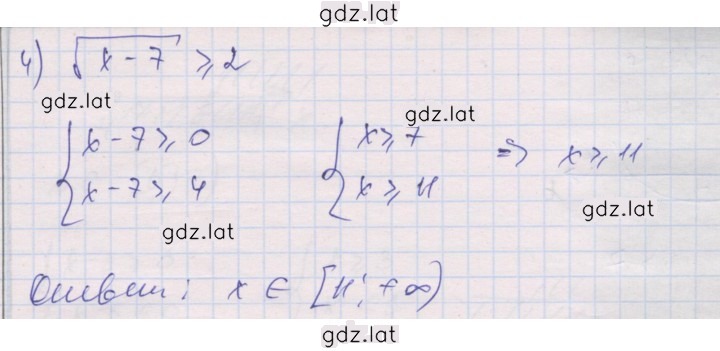 gdz.lat
4) √(x - 7) ⩾ 2
gdz.lat
{ x - 7 ⩾ 0 { x ⩾ 7 ⇒ x ⩾ 11
{ x - 7 ⩾ 4 { x ⩾ 11
gdz.lat
gdz.lat
Ответ: x ∈ [11; +∞)
gdz.lat